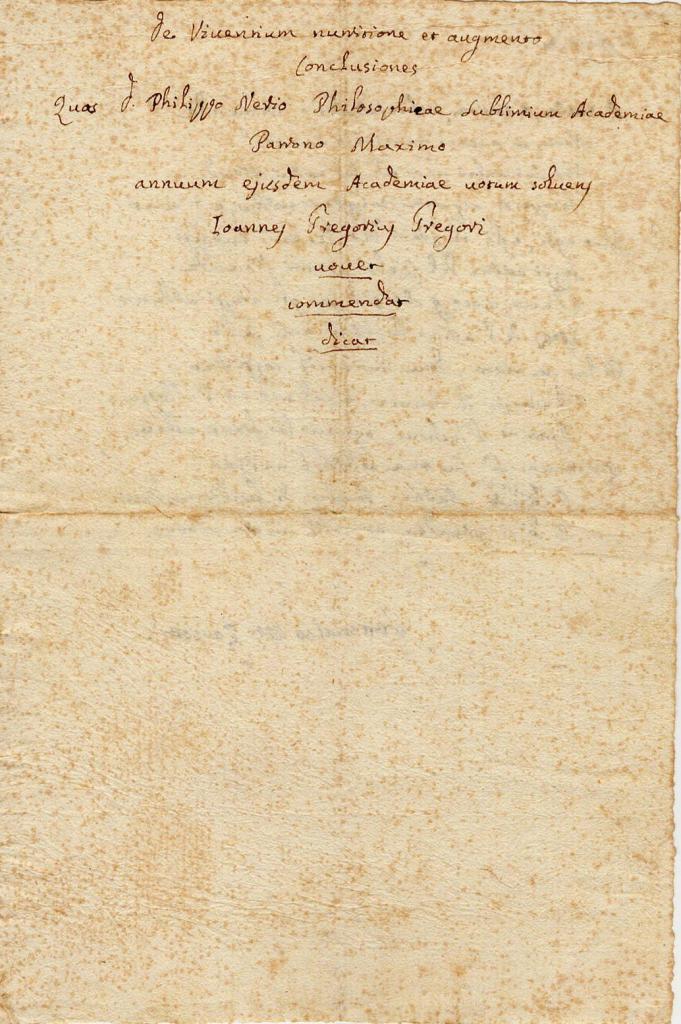 De Viventium nutritione et augmento
Conclusiones
Quas D. Philippo Nerio Philosophicae Sublimium Academiae
Patrono Maximo
annuum ejusdem Academiae votum solvens
Ioannes Gregorius Gregori
vovet
commendat
dicat